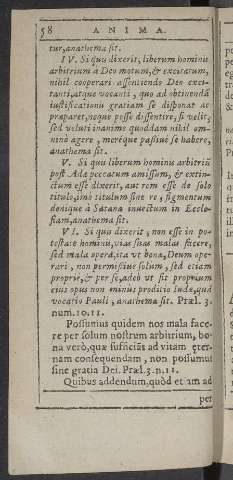 58 ANIMA.
tur, anathema sit.
IV. Si quis dixerit, liberum hominis
arbitrium à Deo motum, & excitatum,
nihil cooperari assentiendo Deo exci-
tanti, atque vocanti, quo ad obtinendã
iustificationis gratiam se disponat ac
præparet, neque posse dissentire, si velit,
sed veluti inanime quoddam nihil om-
ninò agere, merèque passiuè se habere,
anathema sit.
V. Si quis liberum hominis arbitriũ
post Adæ peccatum amissum, & extin-
ctum esse dixerit, aut rem esse de solo
titulo, imò titulum sine re, figmentum
denique à Satana inuectum in Eccle-
siam, anathema sit.
VI. Si quis dixerit, non esse in po-
testate hominis, vias suas malas facere,
sed mala opera, ita vt bona, Deum ope-
rari, non permissiuè solum, sed etiam
propriè, & per se, adeò vt sit proprium
eius opus non minùs proditio Iudæ, quã
vocatio Pauli, anathema sit. Præl. 3.
num. 10. 11.
Possumus quidem nos mala face-
re per solum nostrum arbitrium, bo-
na verò, quæ sufficiãt ad vitam æter-
nam consequendam, non possumus
sine gratia Dei. Præl. 3. n. 11.
Quibus addendum, quòd etiam ad
per